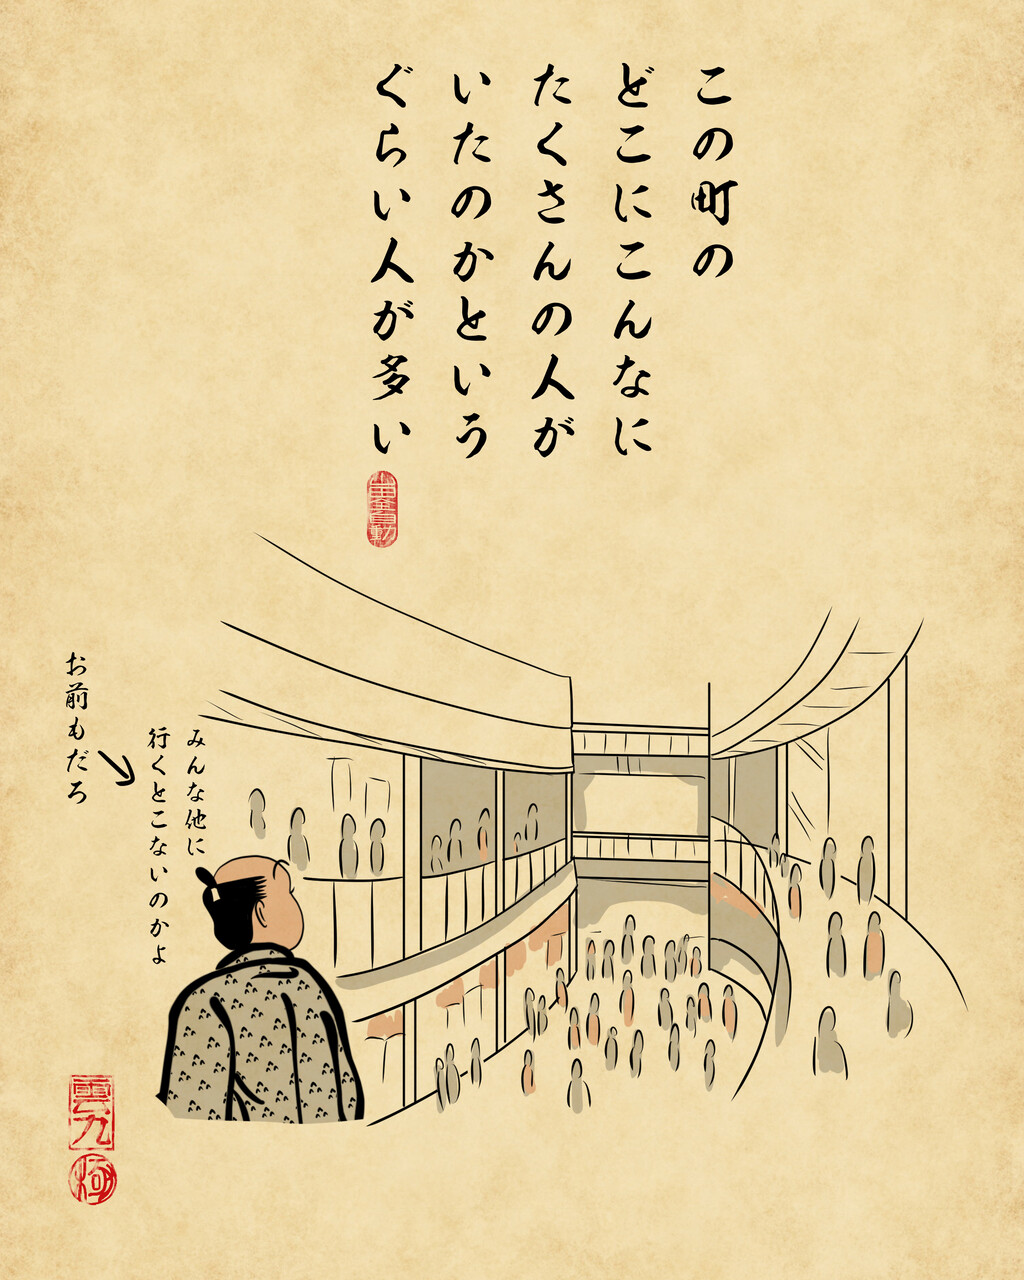 この町の
どこにこんなに
たくさんの人が
いたのかという
ぐらい人が多い
みんな他に
行くとこないのかよ
お前もだろ